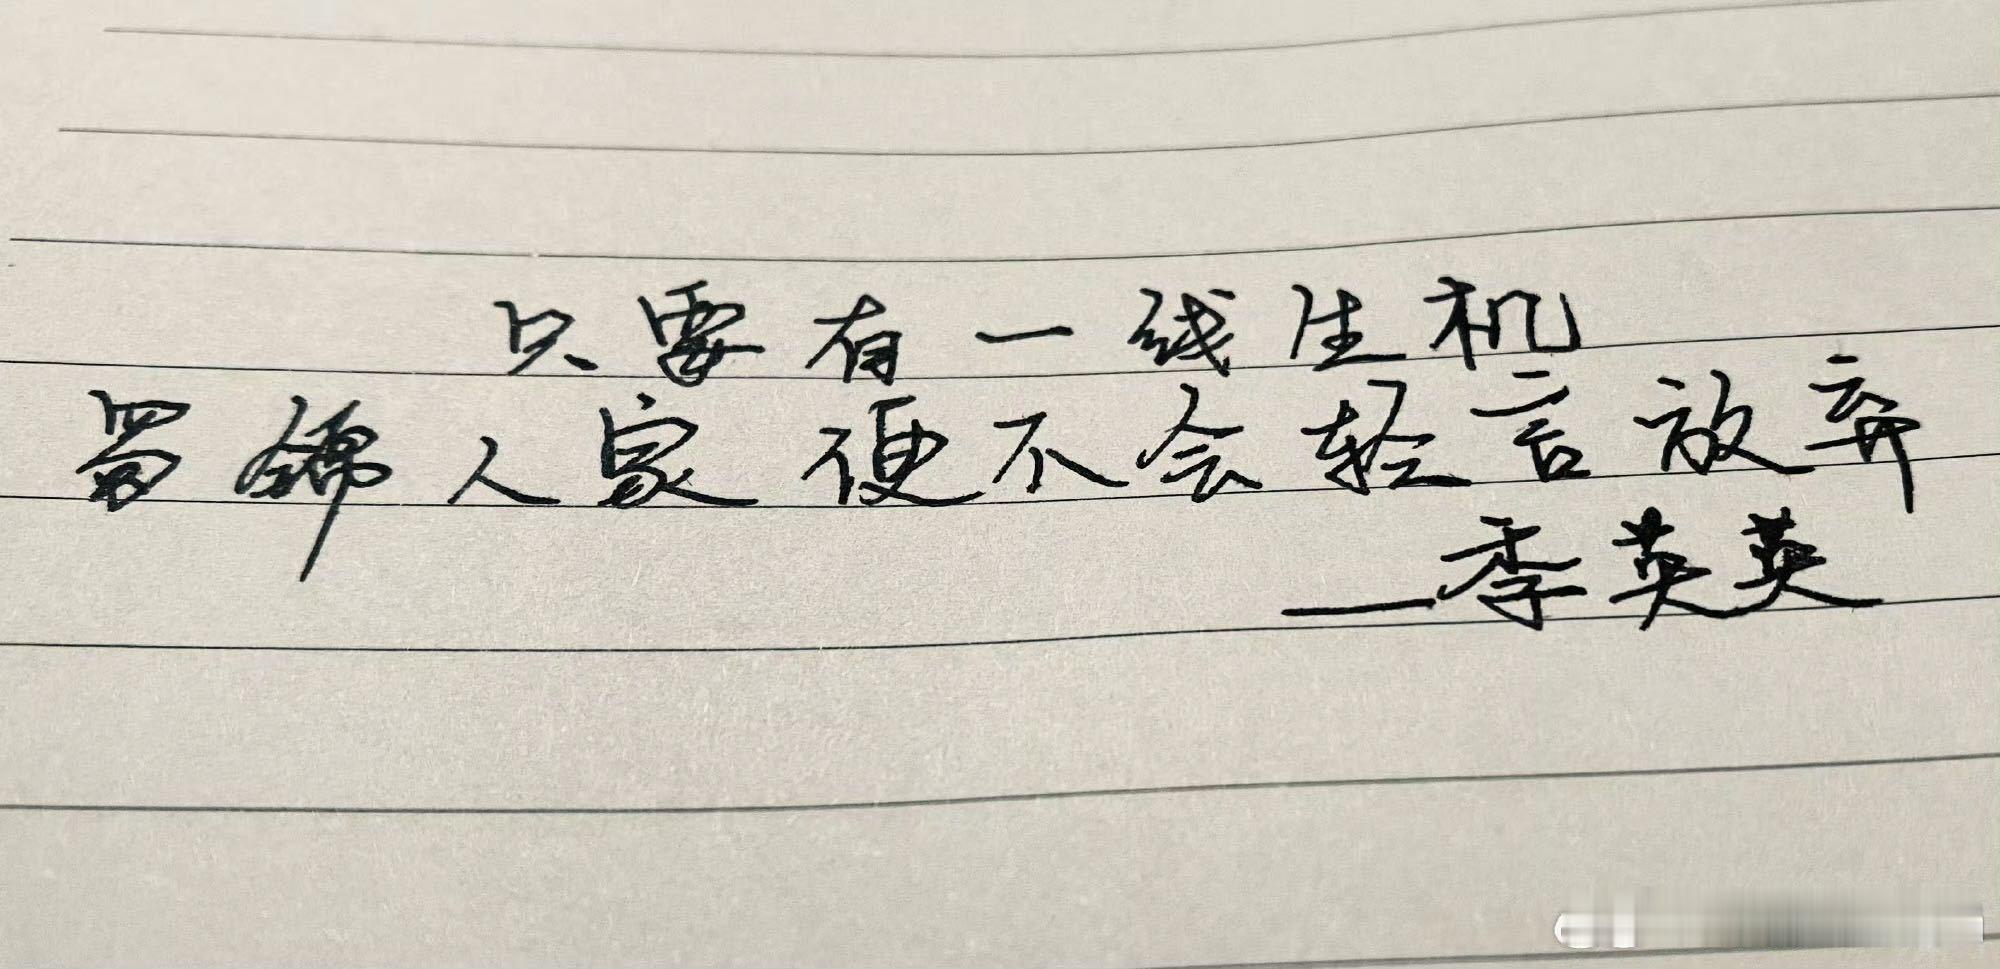 只要有一线生机
蜀锦人家便不会轻言放弃
——季英英